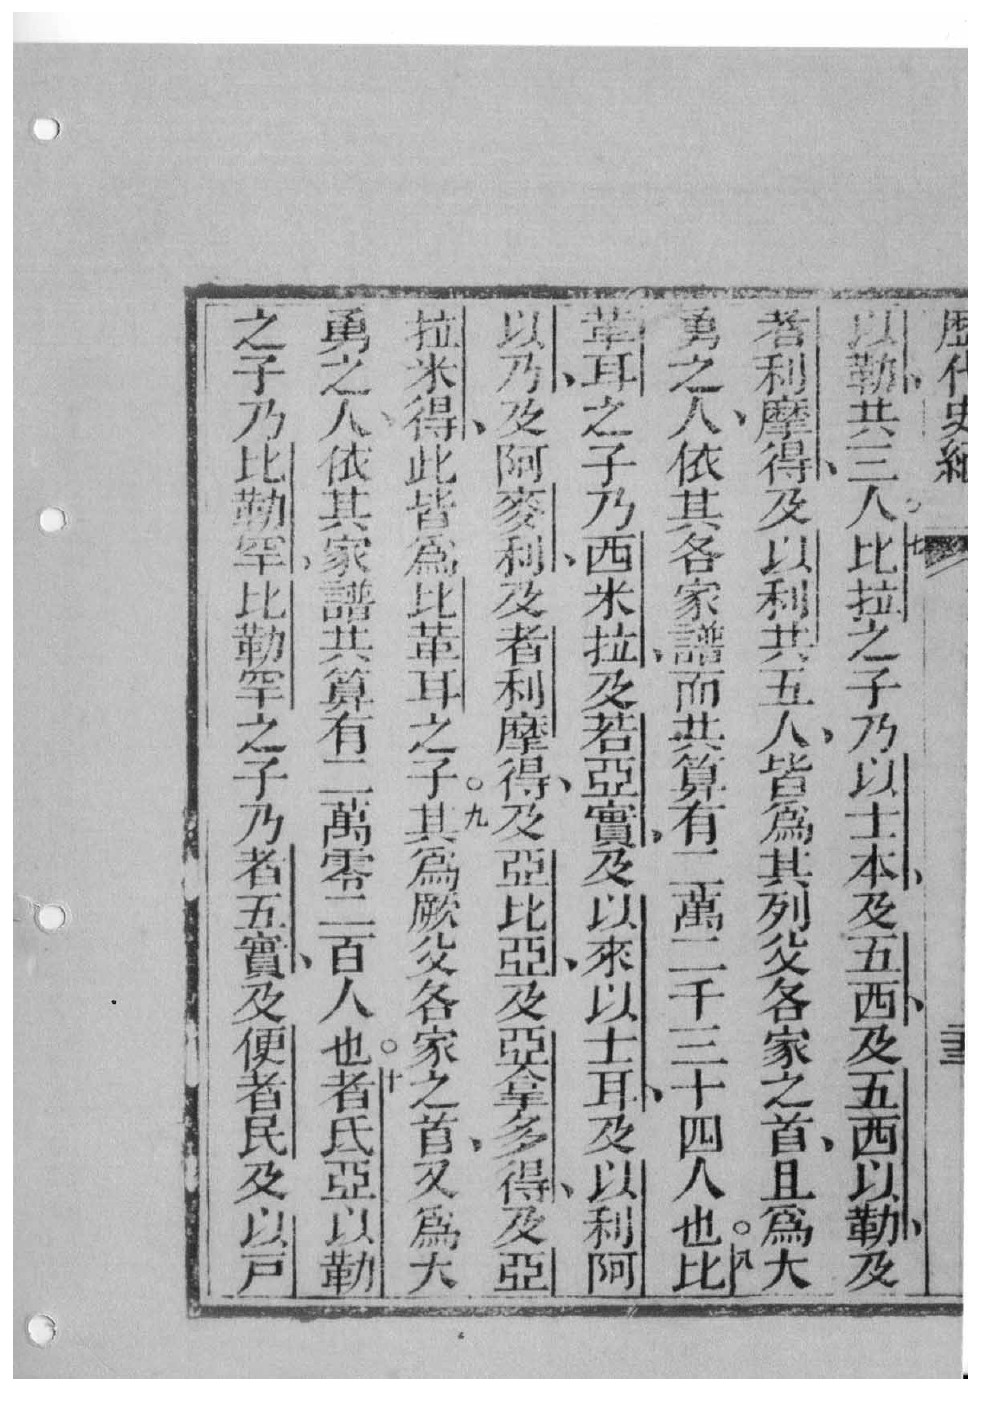 歷代史紀 二三
以勒、共三人。七比拉之子乃以士本、及五西、及五西以勒、及
者利摩得、及以利共五人、皆爲其列父各家之首、且爲大
勇之人、依其各家譜而共算有二萬二千三十四人也。八比
革耳之子乃西米拉、及若亞實、及以來以士耳、及以利阿
以乃、及阿麥利、及者利摩得、及亞比亞、及亞拿多得、及亞
拉米得、此皆爲比革耳之子。九其爲厥父各家之首、又爲大
勇之人、依其家譜共算有二萬零二百人也。十者氏亞以勒
之子乃比勒罕、比勒罕之子乃者五實、及便者民及以戸